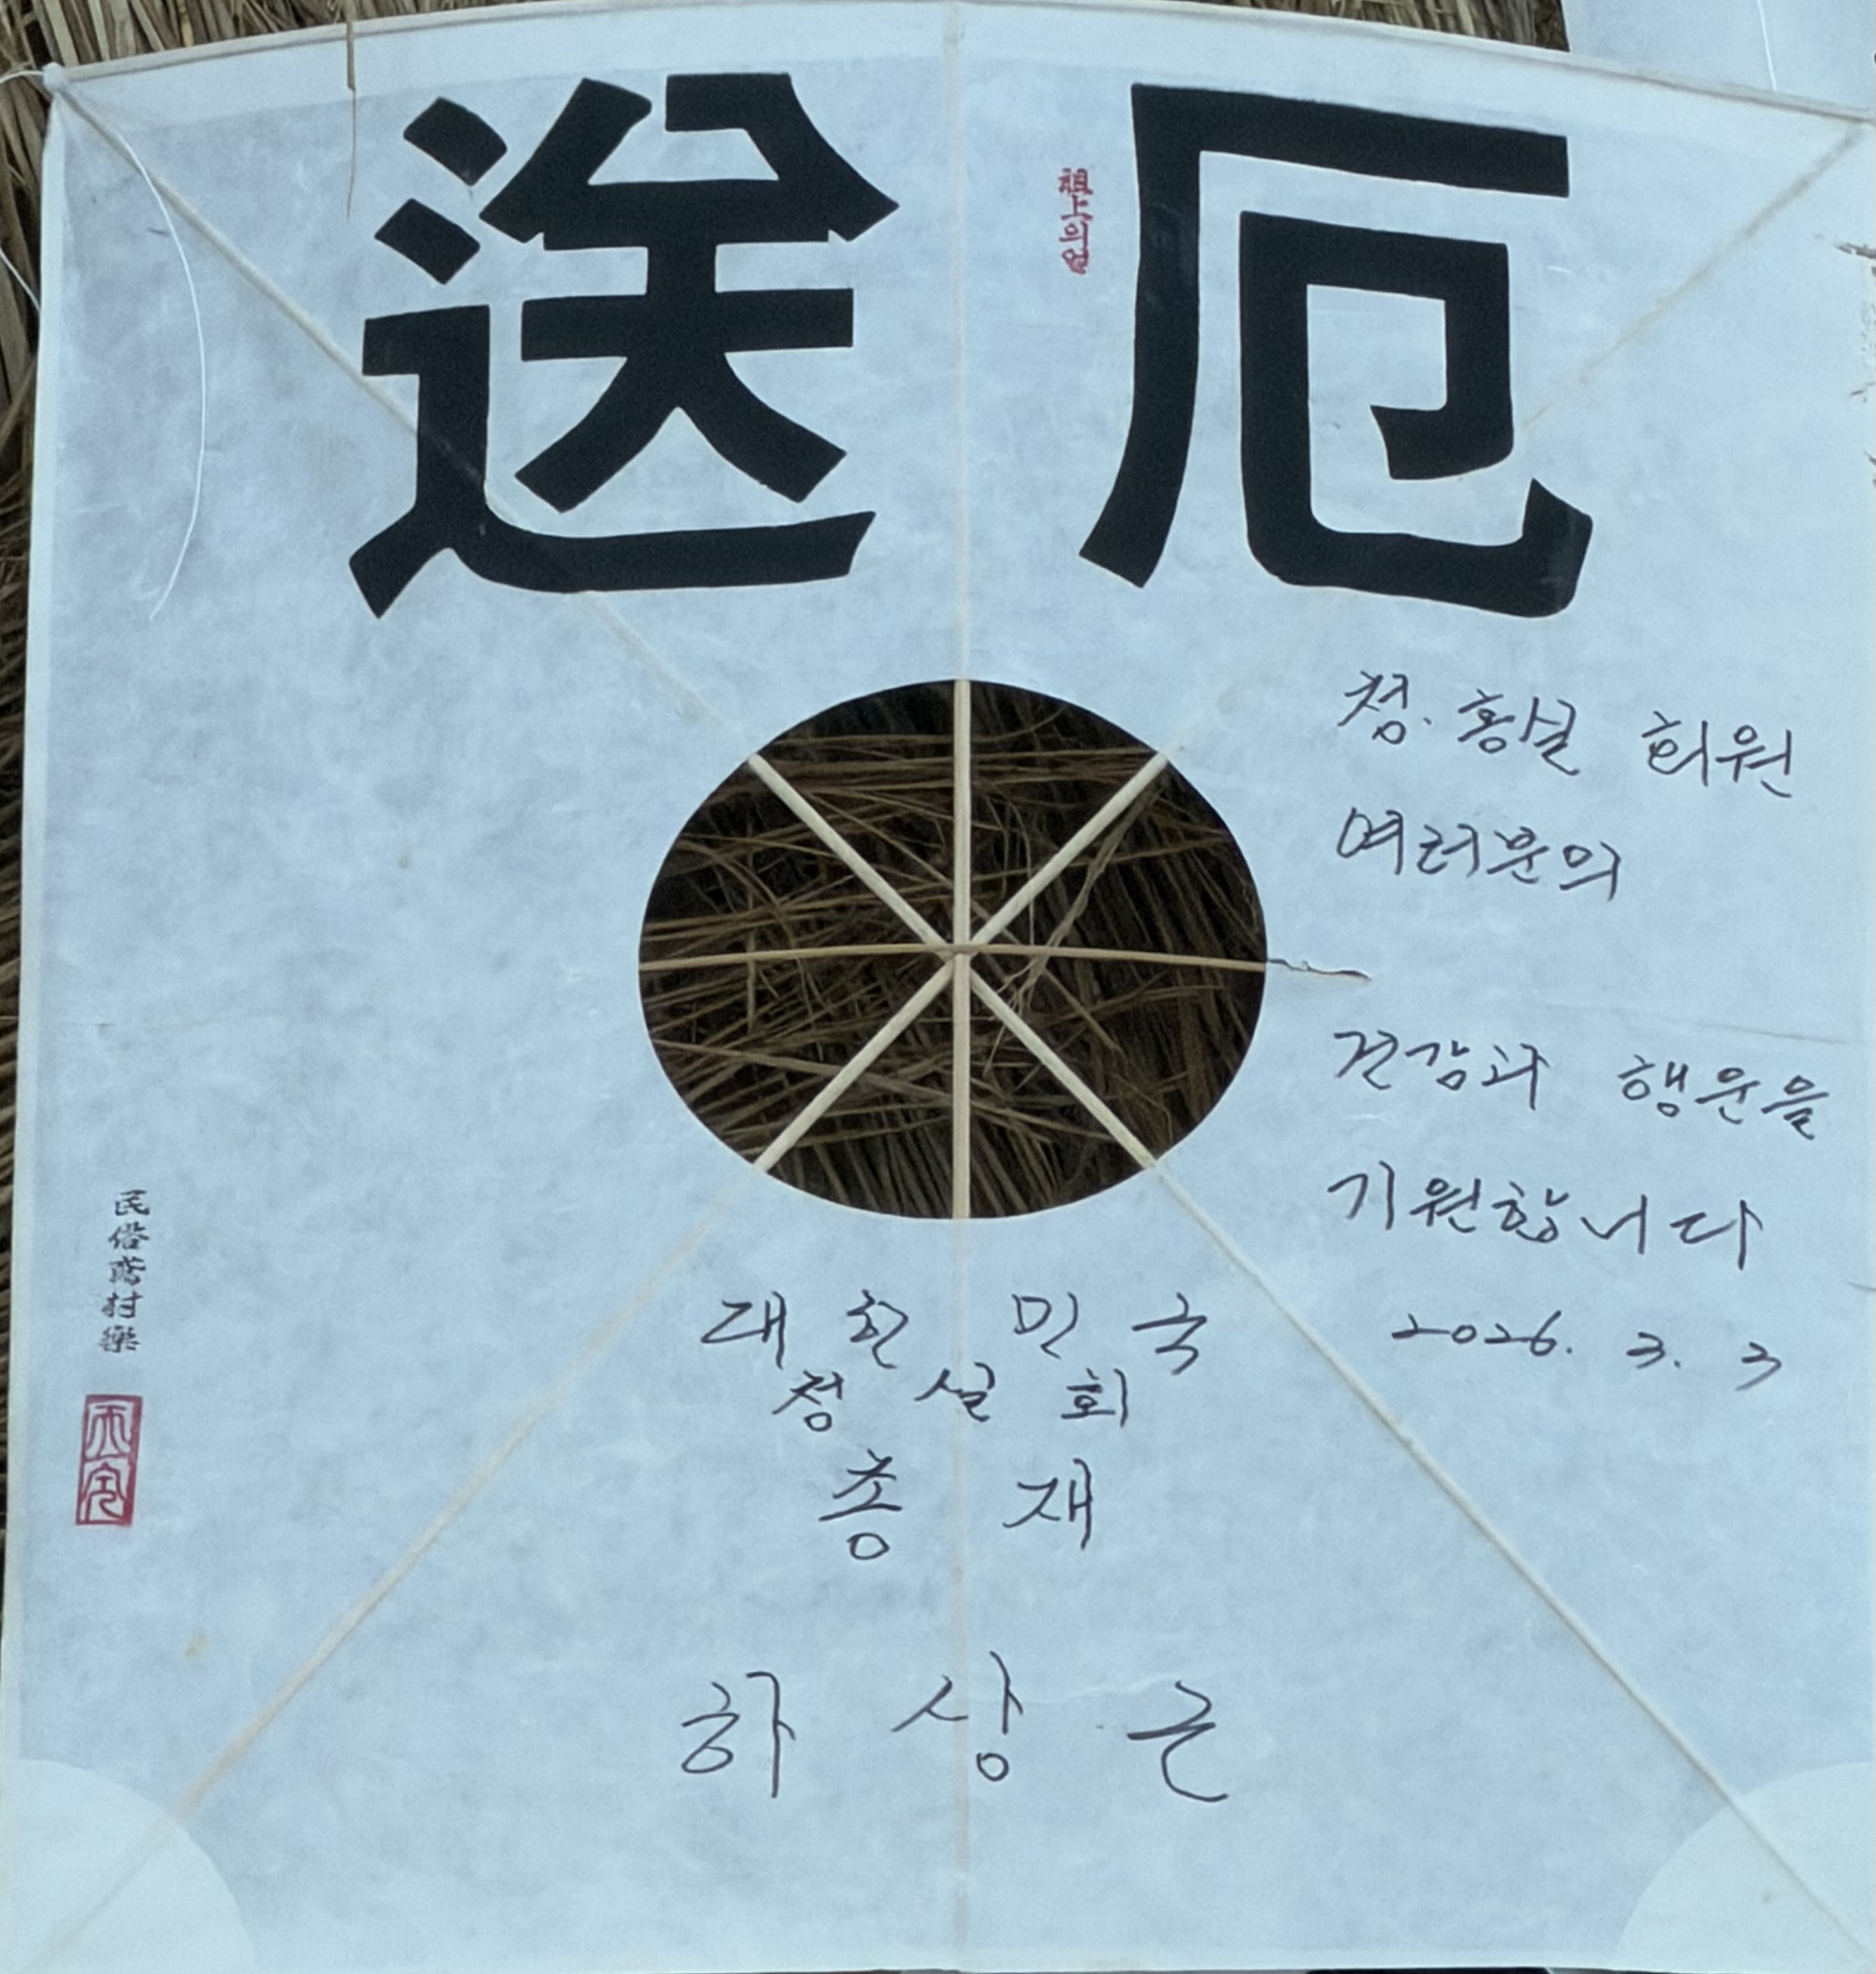 送厄
祖上의얼
청.홍실 회원
여러분의
건강과 행운을
기원합니다
2026. 3. 3
대한민국
청실회
총재
하상근
民俗鳶村樂